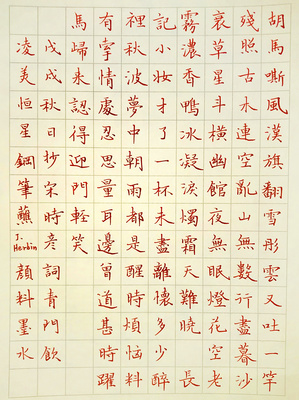 胡馬嘶風漢旗翻雪彤雲又吐一竿
殘照古木連空亂山無數行盡暮沙
衰草星斗橫幽館夜無眠燈花空老
霧濃香鴨冰凝淚燭霜天難曉長
記小妝才了一杯未盡離懷多少醉
裡秋波夢中朝雨都是醒時煩惱料
有牽情處忍思量耳邊曾道甚時躍
馬歸來認得迎門輕笑
戊戌秋日抄宋時彥詞青門飲
凌美恒星鋼筆蘸J.Herbin顏料墨水